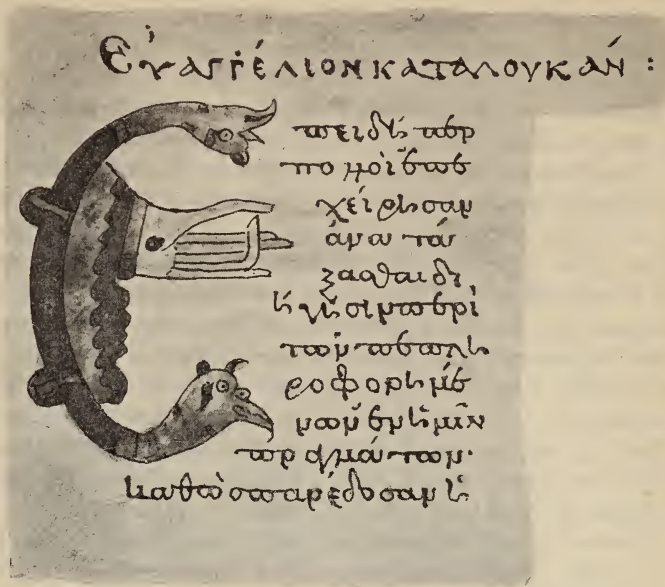 Εὐαγγέλιον κατα λουκάν :
Επειδὴ περ
πολλοὶ ἐπε
χείρησαν
ἀνατά
ξασθαι δι
ήγησιν περὶ
τῶν πεπλη
ροφορημέ
νων ἐν ἡμῖν
πραγμάτων·
καθὼς παρέδοσαν ἡ